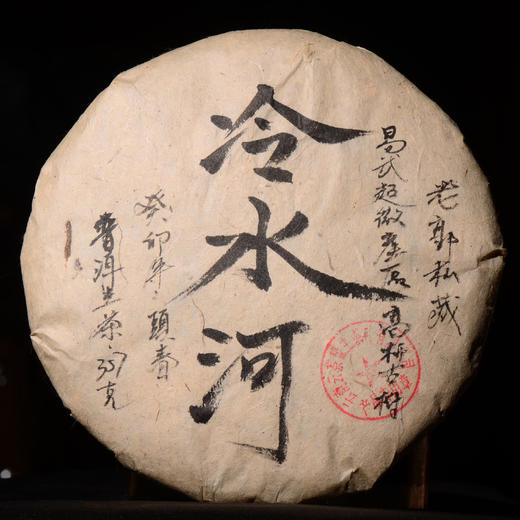 老郭私藏
易武超微产区高杆古樹
冷水河
癸卯年頭春
普洱生茶357克